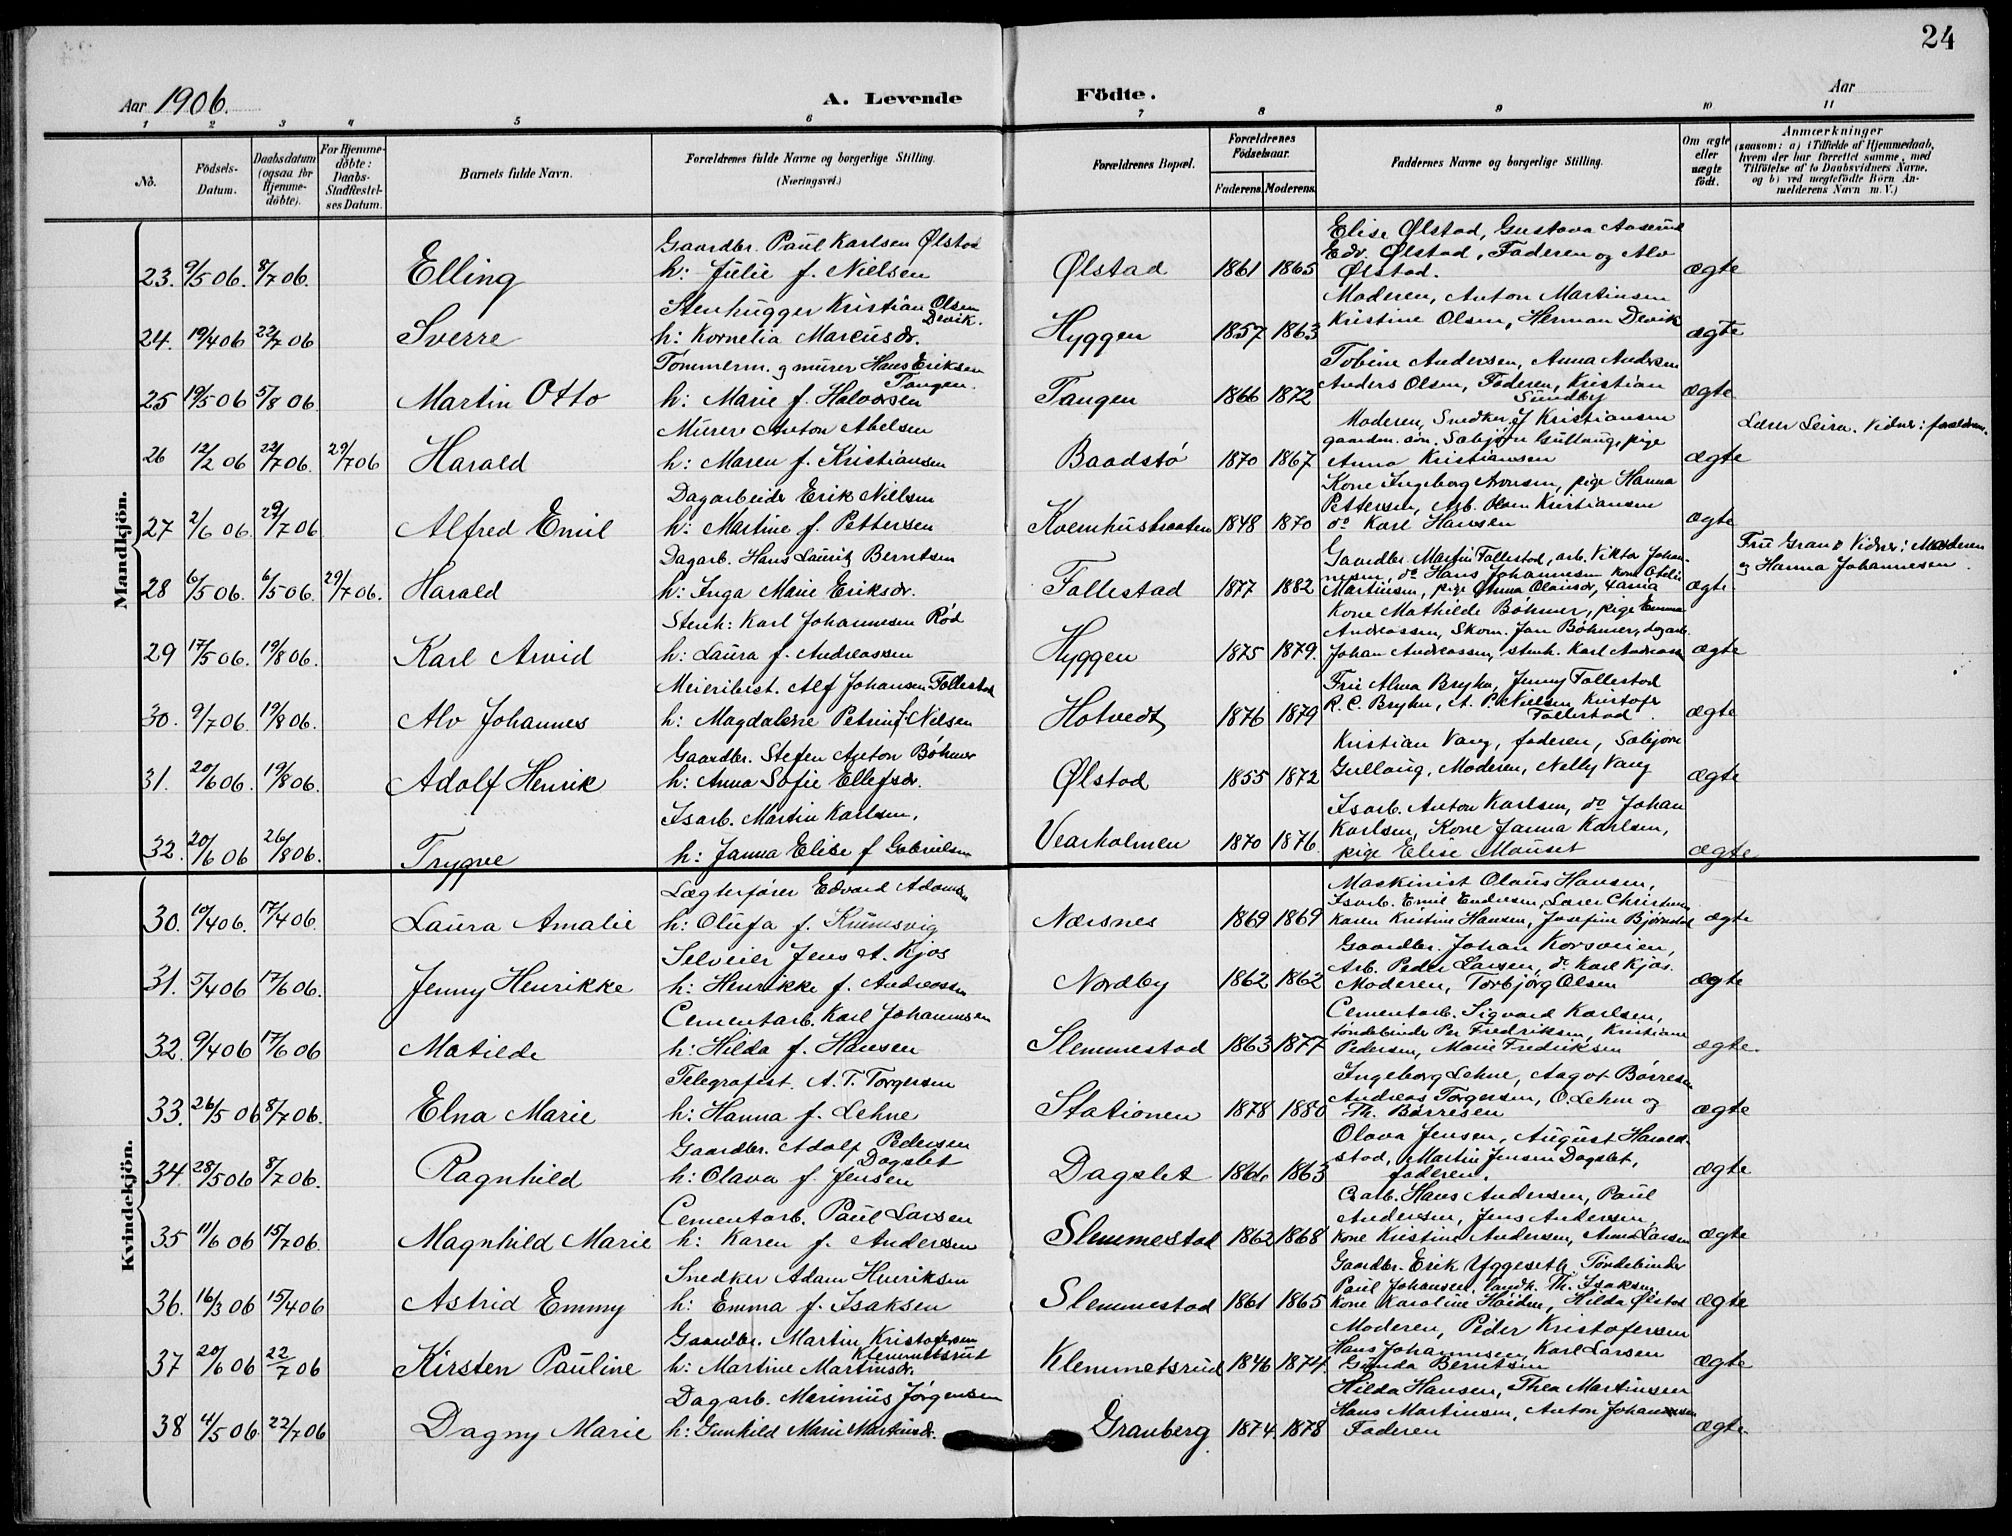 24
Aar 1906.
A. Levende Födte.
Aar
1 2 3 4 5 6 7 8 9 10 11
No.
Födsels-Datum.
Daabsdatum (ogsaa for Hjemme-döbte).
For Hjemme-döbte: Daabs-Stadfæstel-ses Datum.
Barnets fulde Navn.
Forældrenes fulde Navne og borgerlige Stilling.
(Næringsvei.)
Forældrenes Bopæl.
Forældrenes Födselsaar.
Faderens. Moderens.
Faddernes Navne og borgerlige Stilling.
Om ægte eller uægte födt.
Anmærkninger
(saasom: a) i Tilfælde af Hjemmedaab, hvem der har forrettet samme, med Tilföielse af to Daabsvidners Navne, og b) ved uægtefödte Börn An-melderens Navn m. V.)
Mandkjön.
Gaardbr. Paul Karlsen Ølstad Elise Ølstad, Gustava Aaserud
Edv. Ølstad, Faderen og Alv
23. 9/5 06. 8/7 06. Elling h: Julie f. Nielsen Ølstad 1861 1865 Ølstad. ægte
Stenhugger Kristian Olsen Devik. Moderen, Anton Martinsen
24. 19/4 06 22/7 06 Sverre h: Kornelia Marcusdr. Hyggen 1857 1863 Kristine Olsen, Herman Devik ægte
Tömmerm. og murer Hans Eriksen Tangen. Tobine Andersen, Anna Andersen
25 19/5 06 5/8 06 Martin Otto h: Marie f. Halvorsen Tangen 1866 1872 Anders Olsen, Faderen, Kristian Sundby ægte
Murer Anton Abelsen Moderen, Snedker J Kristiansen Lærer Leira. Vidner: forældrene.
gaardm. søn. Sabjörn Gullaug, pige
26 12/2 06 22/7 06. 29/7 06 Harald h: Maren f. Kristiansen Baadstø 1870 1867 Anna Kristiansen ægte
Dagarbeider Erik Nielsen Kone Ingeborg Arnesen, pige Hanna
Pettersen, Arb. Kristiansen
27 2/6 06. 29/7 06 Alfred Emil h: Martine f. Pettersen 1848 1870 do Karl Hansen ægte
Dagarb. Hans Lauritz Berntsen Gaardbr. Martin Follestad, arb. Viktor Johan- Fru Grans Vidner: Moderen
nesen, do Hans Johannesen kone og Hanna Johannesen.
28 6/5 06. 6/5 06. 29/7 06. Harald h: Inga Marie Eriksdr. Follestad 1877 1882 Martinsen, pige Anna Olausdr. ægte.
Stenh: Karl Johannesen Rød Kone Mathilde Böhmer, pige Emma
Andreassen, Skom. Jan Böhmer, dagarb.
29 17/5 06. 19/8 06. Karl Arvid h: Laura f. Andreassen Hyggen 1875 1879. Johan Andreassen, stenh. Karl Andreassen ægte
Meieribest. Alf Johansen Follestad Fru Alma Bryhn, Jenny Follestad
30. 9/7 06. 19/8 06. Alv Johannes h: Magdalene Petrine f. Nielsen Hotvedt 1876 1879 R. C. Bryhn, A. P. Nielsen Kristofr Follestad. ægte
Gaardbr. Stefen Anton Böhmer Kristian Vang, faderen, Sabjørn
31. 20/6 06. 19/8 06. Adolf Henrik h: Anna Sofie Ellefsdr. Ølstad 1855 1872 Gullaug, Moderen, Nelly Vang ægte
Isarb. Martin Karlsen, Isarb. Anton Karlsen, do Johan
Karlsen, Kone Janna Karlsen,
32. 20/6 06 26/8 06. Trygve h: Janna Elise f Gabrielsen Vearholmen 1870 1876. pige Elise Mauset ægte
Kvindekjön.
Lægterfører Edvard Adamsen Maskinist Olaus Hansen,
Isarb. Emil Endresen, Lærer Christensen
30. 10/4 06. 17/4 06. Laura Amalie h: Olufa f. Krumsvig Nærsnes 1869 1869 Karen Kristine Hansen, Josefine Bjørnstad ægte
Selveier Jens A. Kjos Gaardbr. Johan Korsveien,
Arb. Peder Larsen, do Karl Kjos.
31. 5/4 06 17/6 06. Jenny Henrikke h: Henrikke f. Andreassen Nordby 1862 1862 Moderen, Torbjörg Olsen ægte
Cementarb. Karl Johannesen Cementarb. Sigvard Karlsen,
töndebinder Per Fredriksen, Kristiane
32. 9/4 06 17/6 06 Matilde h: Hilda f. Hansen Slemmestad 1863 1877 Pedersen, Marie Fredriksen ægte.
Telegrafist. A. T. Torgersen Ingeborg Lehne, Aagot Børresen
Andreas Torgersen, O. Lehne og
33. 26/5 06 8/7 06. Elna Marie h: Hanna f. Lehne Stationen 1878 1880 Th. Børresen ægte
Gaardbr. Adolf Pedersen Dagslet Olava Jensen, August Harald-
stad, Martin Jensen Dagslet,
34 28/5 06 8/7 06. Ragnhild h: Olava f. Jensen Dagslet 1866 1863 faderen. ægte
Cementarb. Paul Larsen C arb. Hans Andersen, Paul
Andersen, Jens Andersen,
35 11/6 06 15/7 06. Magnhild Marie h: Karen f. Andersen Slemmestad 1862 1868 kone Kristine Andersen, Anna Larsen ægte
Snedker Adam Henriksen Gaardbr. Erik Yggeseth. Töndebinder
Paul Johansen, landh. Th. Isaksen,
36. 16/3 06 15/4 06 Astrid Emmy h: Emma f. Isaksen Slemmestad 1861 1865 kone Karoline Høidm, Hilda Ølstad ægte
Gaardbr. Martin Kristofersen Klemmetsrud Moderen, Peder Kristofersen
Hans Johannesen, Karl Larsen
37 20/6 06 22/7 06 Kirsten Pauline h: Martine Martinsdr. Klemmetsrud 1846 1874. Gunda Berntsen ægte
Dagarb. Marinius Jörgensen Hilda Hansen, Thea Martinsen
Hans Martinsen, Anton Johannesen
38 4/5 06. 22/7 06 Dagny Marie h: Gunhild Marie Martinsdr. Granberg 1874. 1878 Faderen ægte.